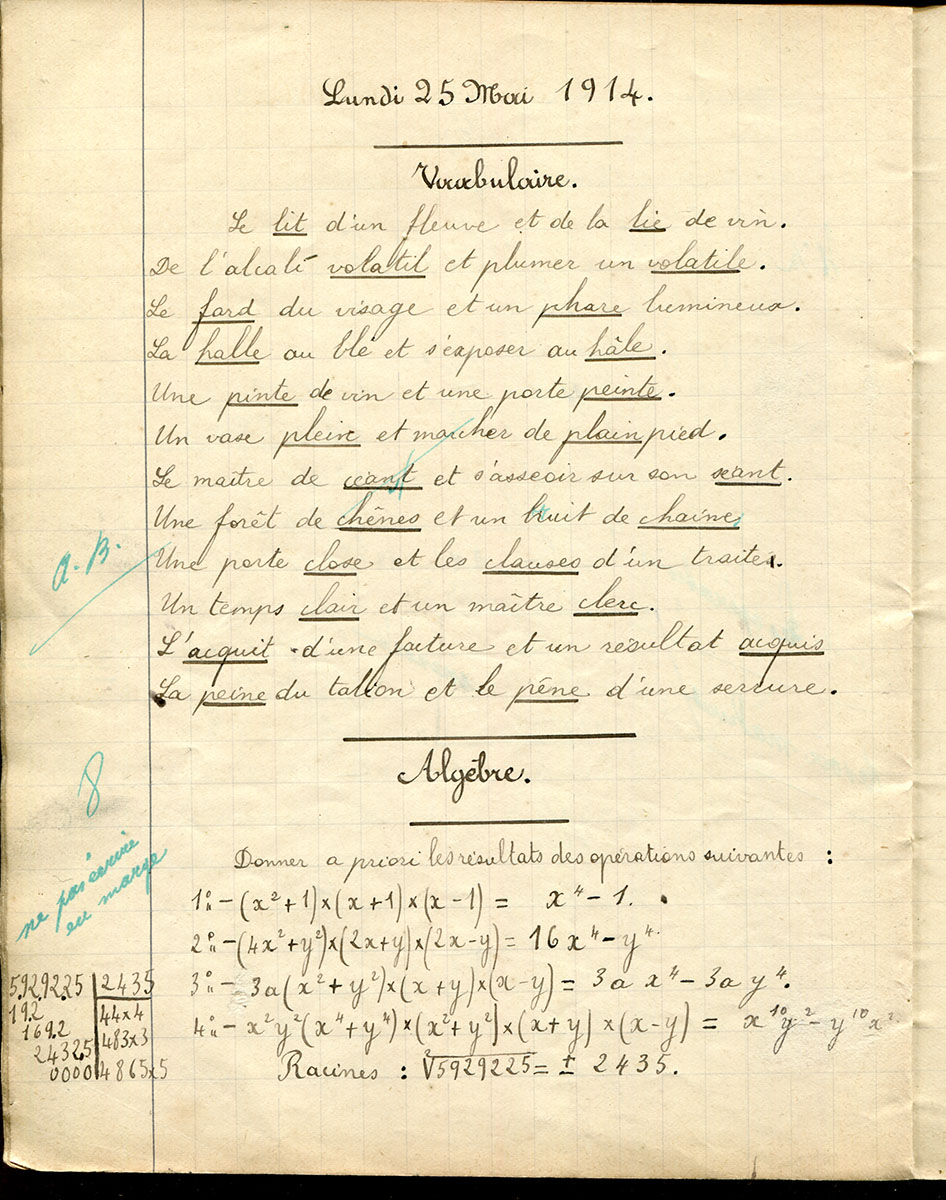 Lundi 25 Mai 1914.
Vocabulaire.
Le lit d'un fleuve et de la lie de vin.
De l'alcali volatil et plumer un volatile.
Le fard du visage et un phare lumineux.
La halle au blé et s'exposer au hâle.
Une pinte de vin et une porte peinte.
Un vase plein et marcher de plain pied.
Le maître de céant et s'asseoir sur son séant.
Une forêt de chênes et un bruit de chaîne
A. B.
Une porte close et les clauses d'un traité.
Un temps clair et un maître clerc.
L'acquit d'une facture et un résultat acquis
La peine du talion et le pêne d'une serrure.
Algèbre.
8
ne pas écrire
en marge
Donner a priori les résultats des opérations suivantes :
1° - (x²+1)×(x+1)×(x-1) = x⁴-1.
2° - (4x²+y²)×(2x+y)×(2x-y) = 16x⁴-y⁴.
3° - 3a(x²+y²)×(x+y)×(x-y) = 3a x⁴ - 3a y⁴.
4° - x²y²(x⁴+y⁴)×(x²+y²)×(x+y)×(x-y) = x¹⁰y² - y¹⁰x²
Racines : ²√5929225 = ± 2435.
5.92.92.25 | 2435
19.2 | 44×4
169.2 | 483×3
2432.5
0000 | 4865×5